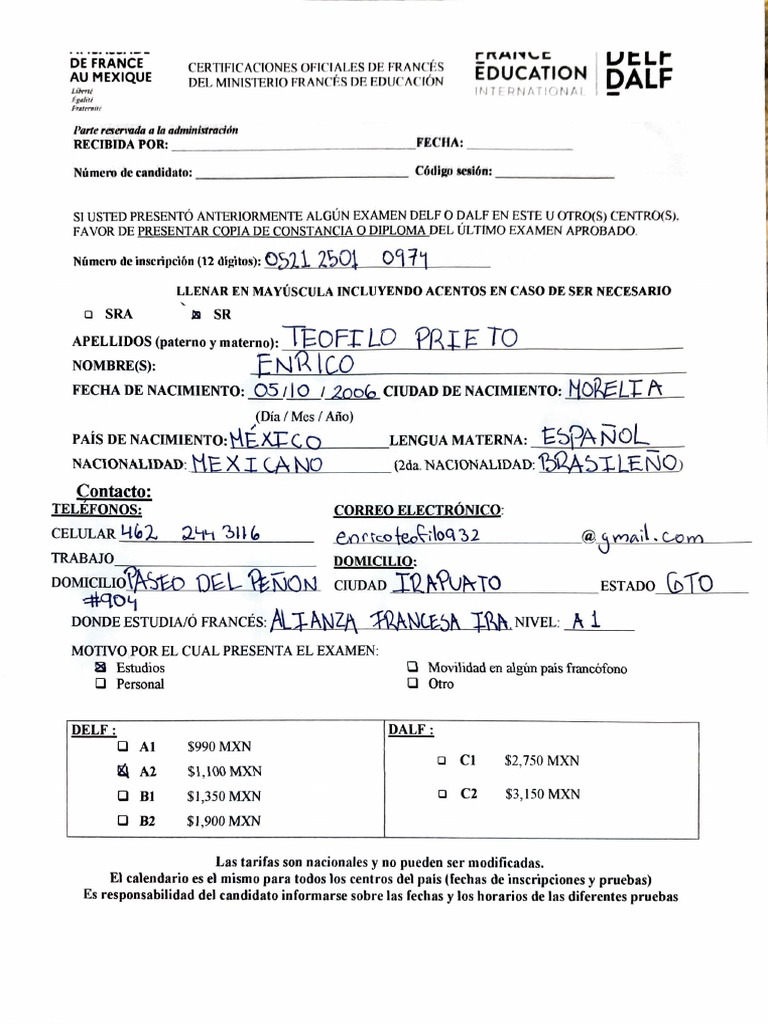 AMBASSADE
DE FRANCE
AU MEXIQUE
Liberté
Égalité
Fraternité
CERTIFICACIONES OFICIALES DE FRANCÉS
DEL MINISTERIO FRANCÉS DE EDUCACIÓN
FRANCE
ÉDUCATION
INTERNATIONAL
DELF
DALF
Parte reservada a la administración
RECIBIDA POR: FECHA:
Número de candidato: Código sesión:
SI USTED PRESENTÓ ANTERIORMENTE ALGÚN EXAMEN DELF O DALF EN ESTE U OTRO(S) CENTRO(S).
FAVOR DE PRESENTAR COPIA DE CONSTANCIA O DIPLOMA DEL ÚLTIMO EXAMEN APROBADO.
Número de inscripción (12 dígitos): 0521 2501 0974
LLENAR EN MAYÚSCULA INCLUYENDO ACENTOS EN CASO DE SER NECESARIO
SRA SR
APELLIDOS (paterno y materno): TEOFILO PRIETO
NOMBRE(S): ENRICO
FECHA DE NACIMIENTO: 05/10/2006 CIUDAD DE NACIMIENTO: MORELIA
(Día / Mes / Año)
PAÍS DE NACIMIENTO: MÉXICO LENGUA MATERNA: ESPAÑOL
NACIONALIDAD: MEXICANO (2da. NACIONALIDAD: BRASILEÑO)
Contacto:
TELÉFONOS: CORREO ELECTRÓNICO:
CELULAR 462 244 3116 enricoteofilo932 @gmail.com
TRABAJO DOMICILIO:
DOMICILIO PASEO DEL PEÑON CIUDAD IRAPUATO ESTADO GTO
#904
DONDE ESTUDIA/Ó FRANCÉS: ALIANZA FRANCESA IRA. NIVEL: A1
MOTIVO POR EL CUAL PRESENTA EL EXAMEN:
Estudios Movilidad en algún país francófono
Personal Otro
DELF : DALF :
A1 $990 MXN
C1 $2,750 MXN
A2 $1,100 MXN
B1 $1,350 MXN
C2 $3,150 MXN
B2 $1,900 MXN
Las tarifas son nacionales y no pueden ser modificadas.
El calendario es el mismo para todos los centros del país (fechas de inscripciones y pruebas)
Es responsabilidad del candidato informarse sobre las fechas y los horarios de las diferentes pruebas